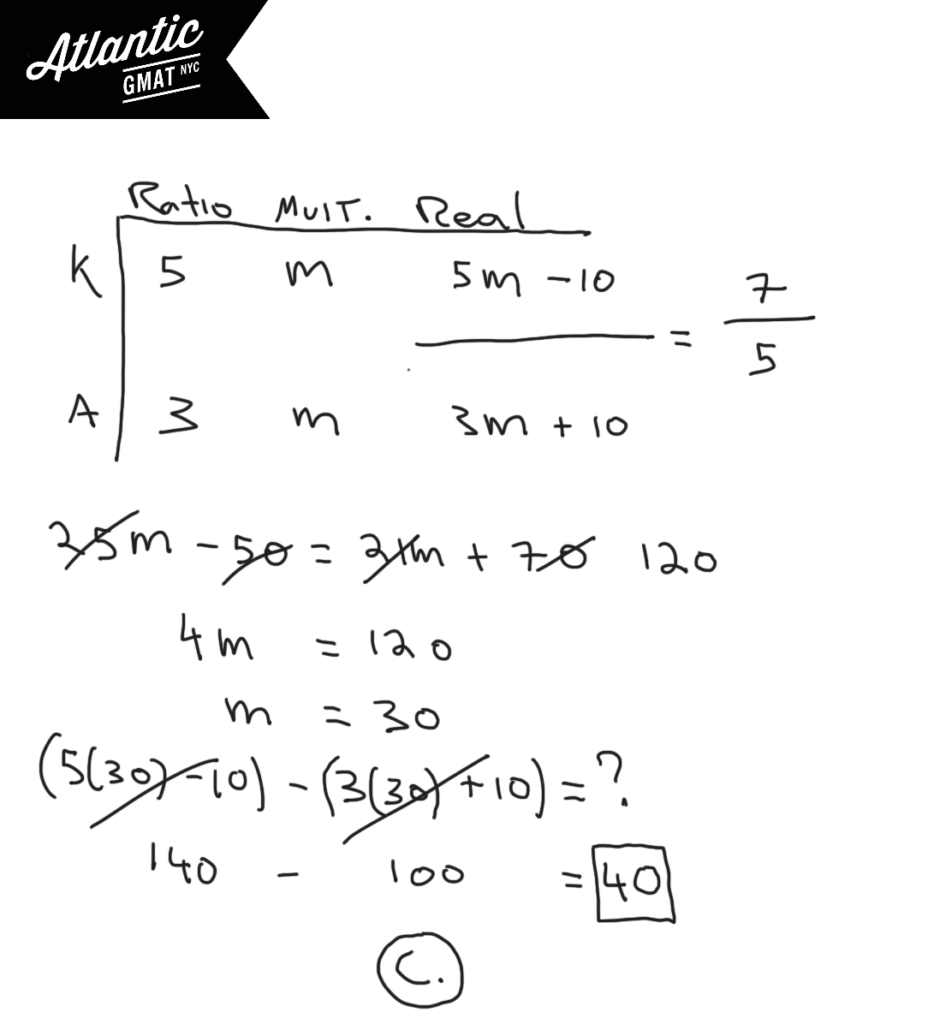 Atlantic
GMAT NYC
Ratio MulT. Real
K 5 m 5m - 10
= 7/5
A 3 m 3m + 10
35m - 50 = 21m + 70 120
4m = 120
m = 30
(5(30) - 10) - (3(30) + 10) = ?
140 - 100 = 40
C.